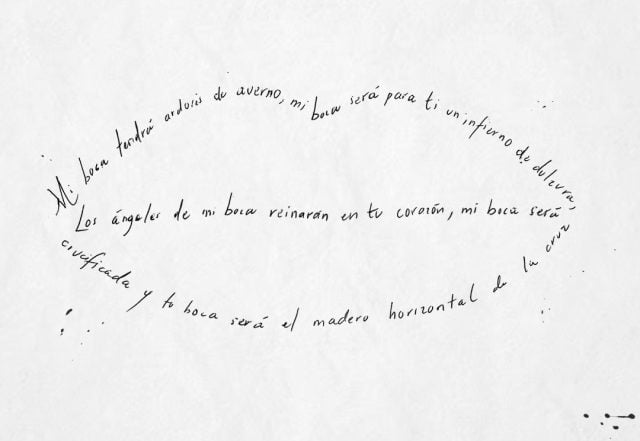 Mi boca tendrá ardores de averno, mi boca será para ti un infierno de dulzura,
Los ángeles de mi boca reinaran en tu corazón, mi boca será
crucificada y tu boca será el madero horizontal de la cruz